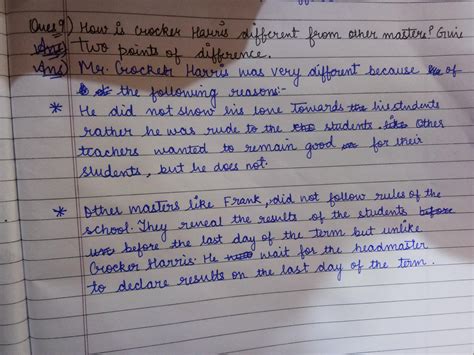 Ques 9) How is Crocker Harris different from other masters? Give
two points of difference.
Ans) Mr. Crocker Harris was very different because of
the following reason:-
* He did not show his love towards his students
rather he was rude to the students. Other
teachers wanted to remain good for their
students, but he does not.
* Other masters like Frank, did not follow rules of the
school. They reveal the results of the students
before the last day of the term but unlike
Crocker Harris. He wait for the headmaster
to declare results on the last day of the term.